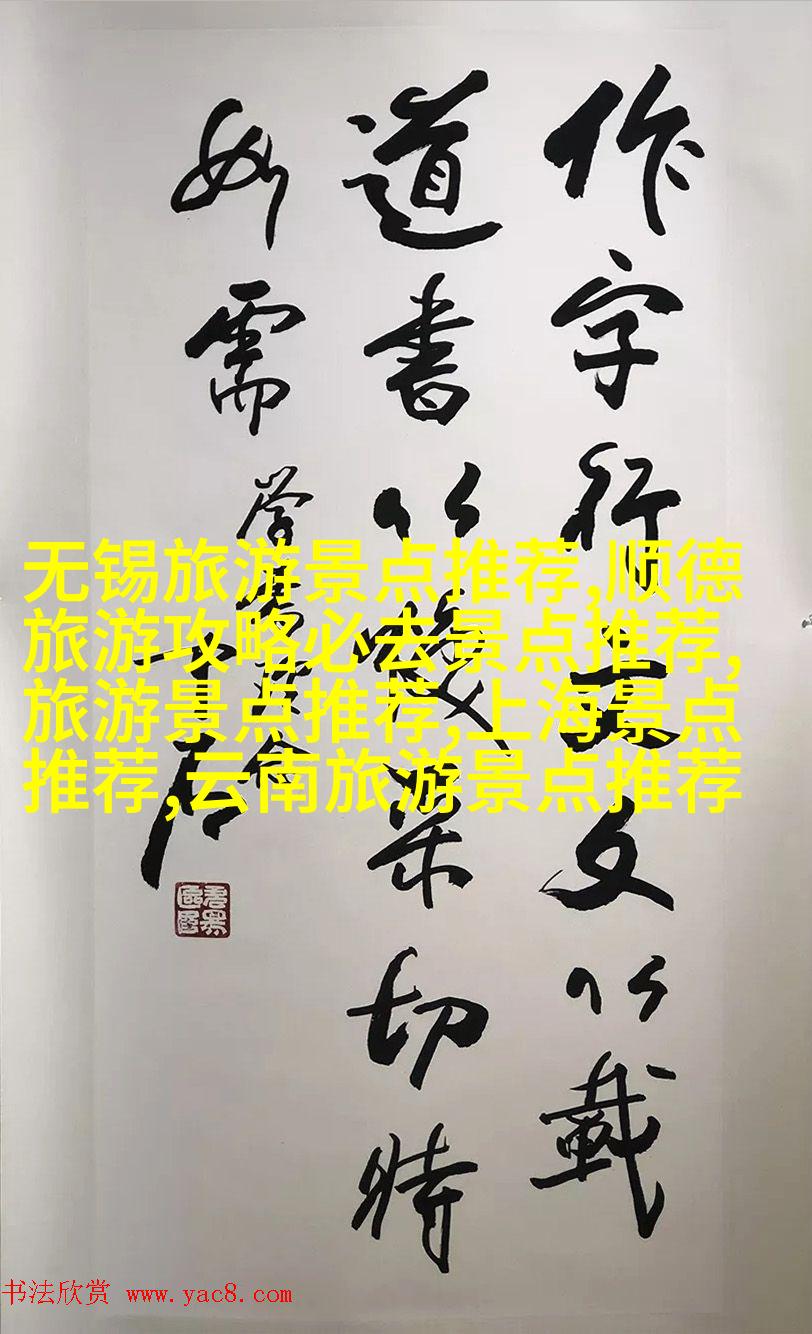 作字行文文以載
道書以煥采切時
如需
中石
无锡旅游景点推荐,顺德
旅游攻略必去景点推荐,
旅游景点推荐,上海景点
推荐,云南旅游景点推荐
书法欣赏 www.yac8.com